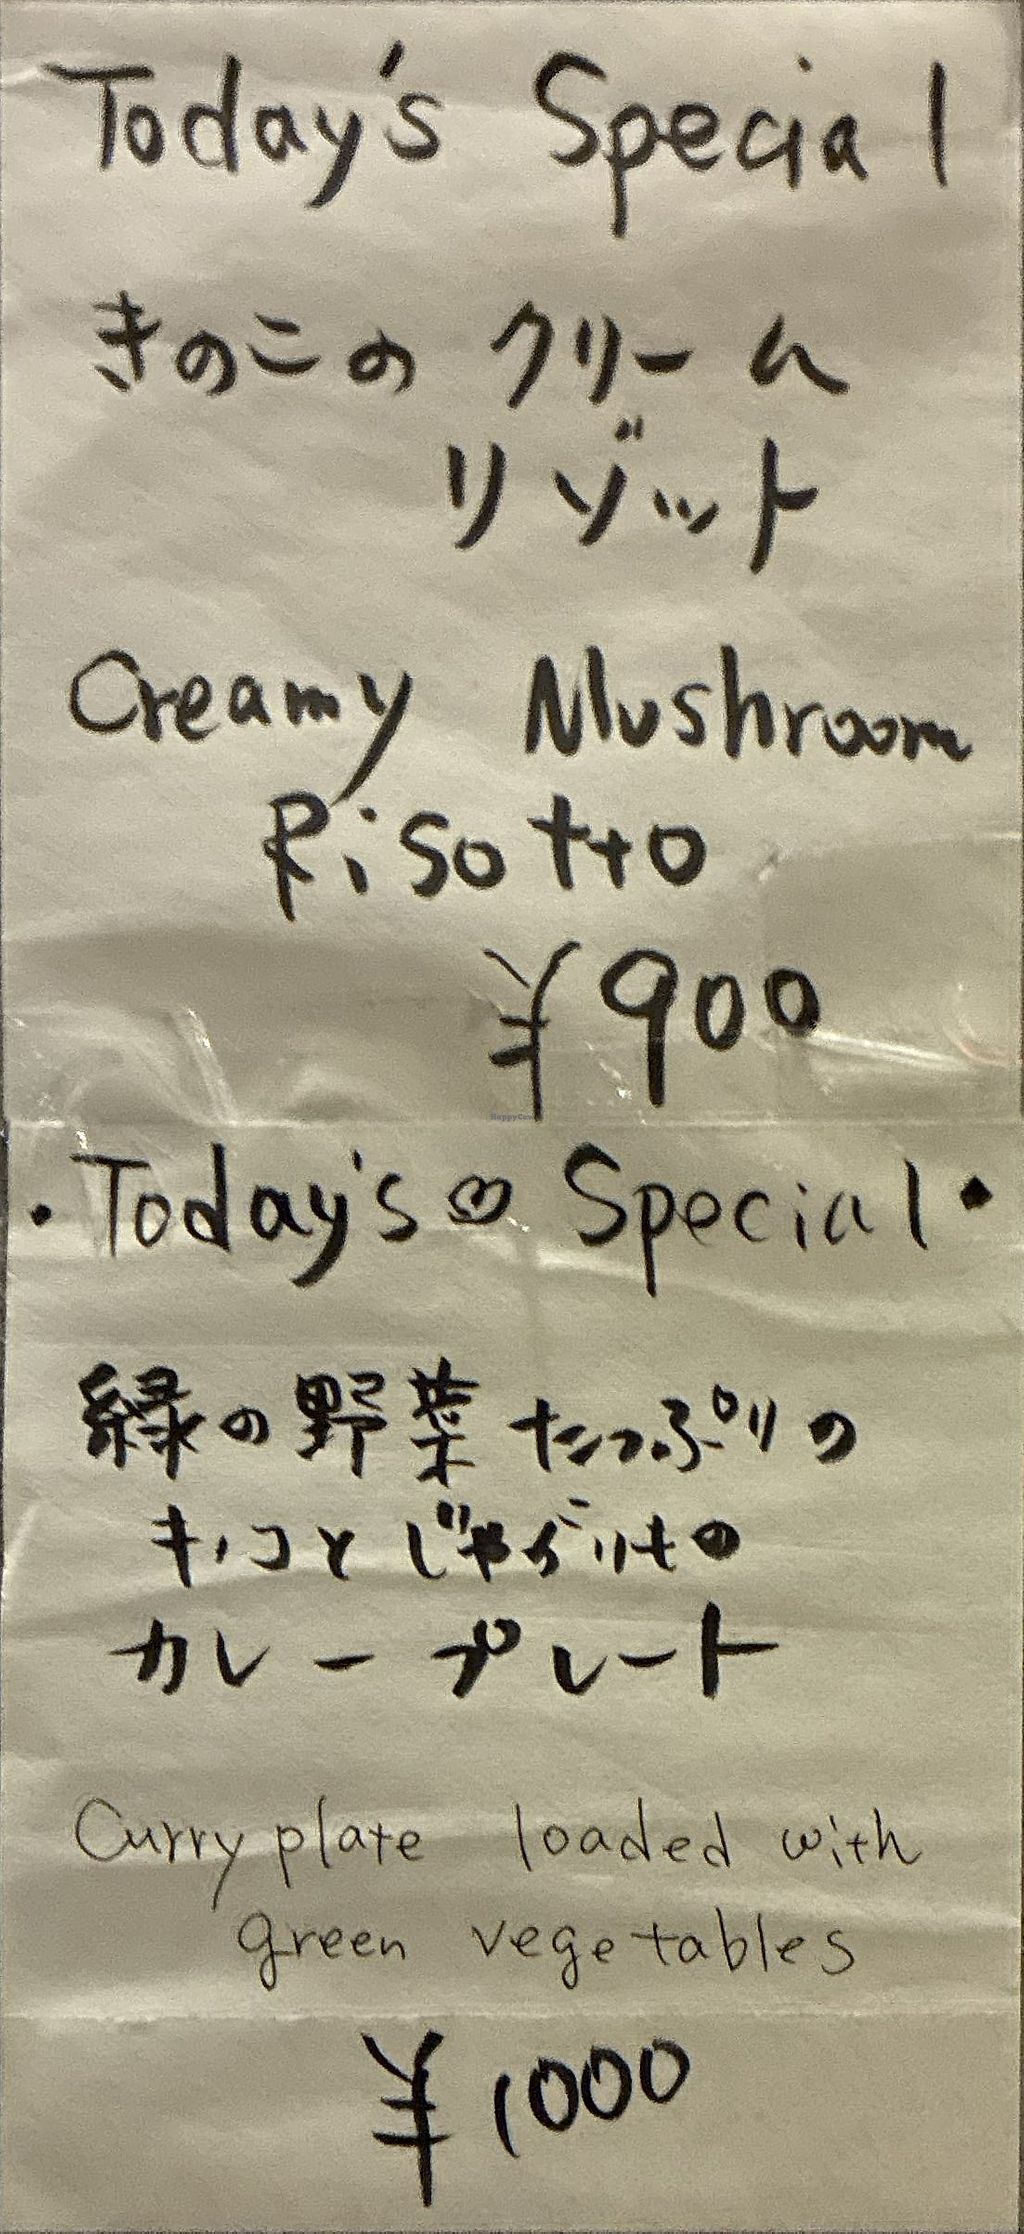 Today's Special
きのこの クリーム
リゾット
Creamy Mushroom
Risotto
¥900
HappyCow
・Today's♡ Special・
緑の野菜たっぷりの
キノコとじゃがいもの
カレープレート
Curry plate loaded with
green vegetables
¥1000